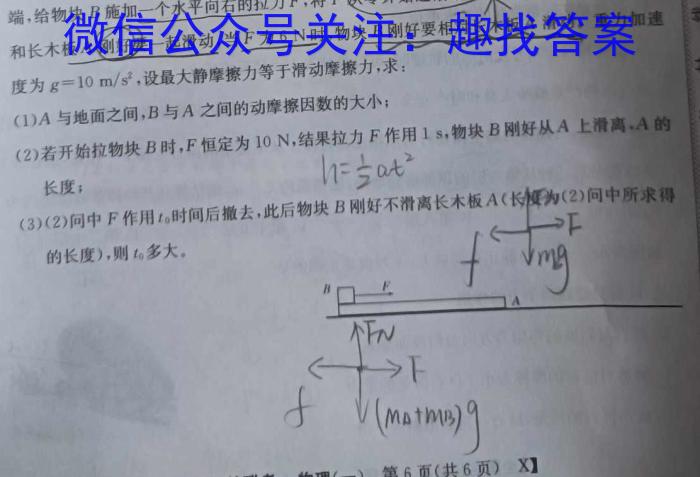 端,给物块B施加一个水平向右的拉力F,将F从零开始
微信公众号关注:趣找答案
和长木板A刚好 一起滑动,当F为6N时,物块B刚好要相 木板 滑 重力加速
度为g=10 m/s²,设最大静摩擦力等于滑动摩擦力,求:
(1)A与地面之间,B与A之间的动摩擦因数的大小;
(2)若开始拉物块B时,F恒定为10 N,结果拉力F作用1 s,物块B刚好从A上滑离,A的
长度;
h=½at²
(3)(2)问中F作用t₀时间后撤去,此后物块B刚好不滑离长木板A(长度为(2)问中所求得
的长度),则t₀多大。
F
f
mg
B F A
FN
F
f
(mA+mB)g
物理(一) 第6页(共6页) X】